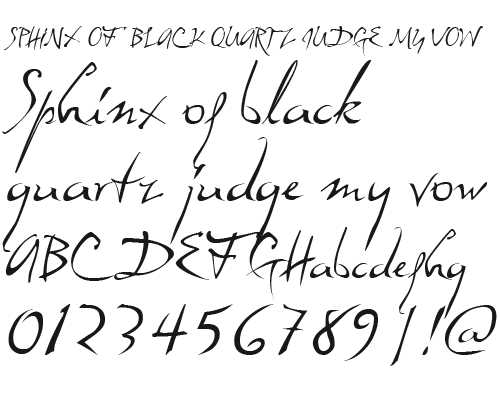 SPHINX OF BLACK QUARTZ JUDGE MY VOW
Sphinx of black
quartz judge my vow
ABCDEFGHabcdefhg
0123456789/!@